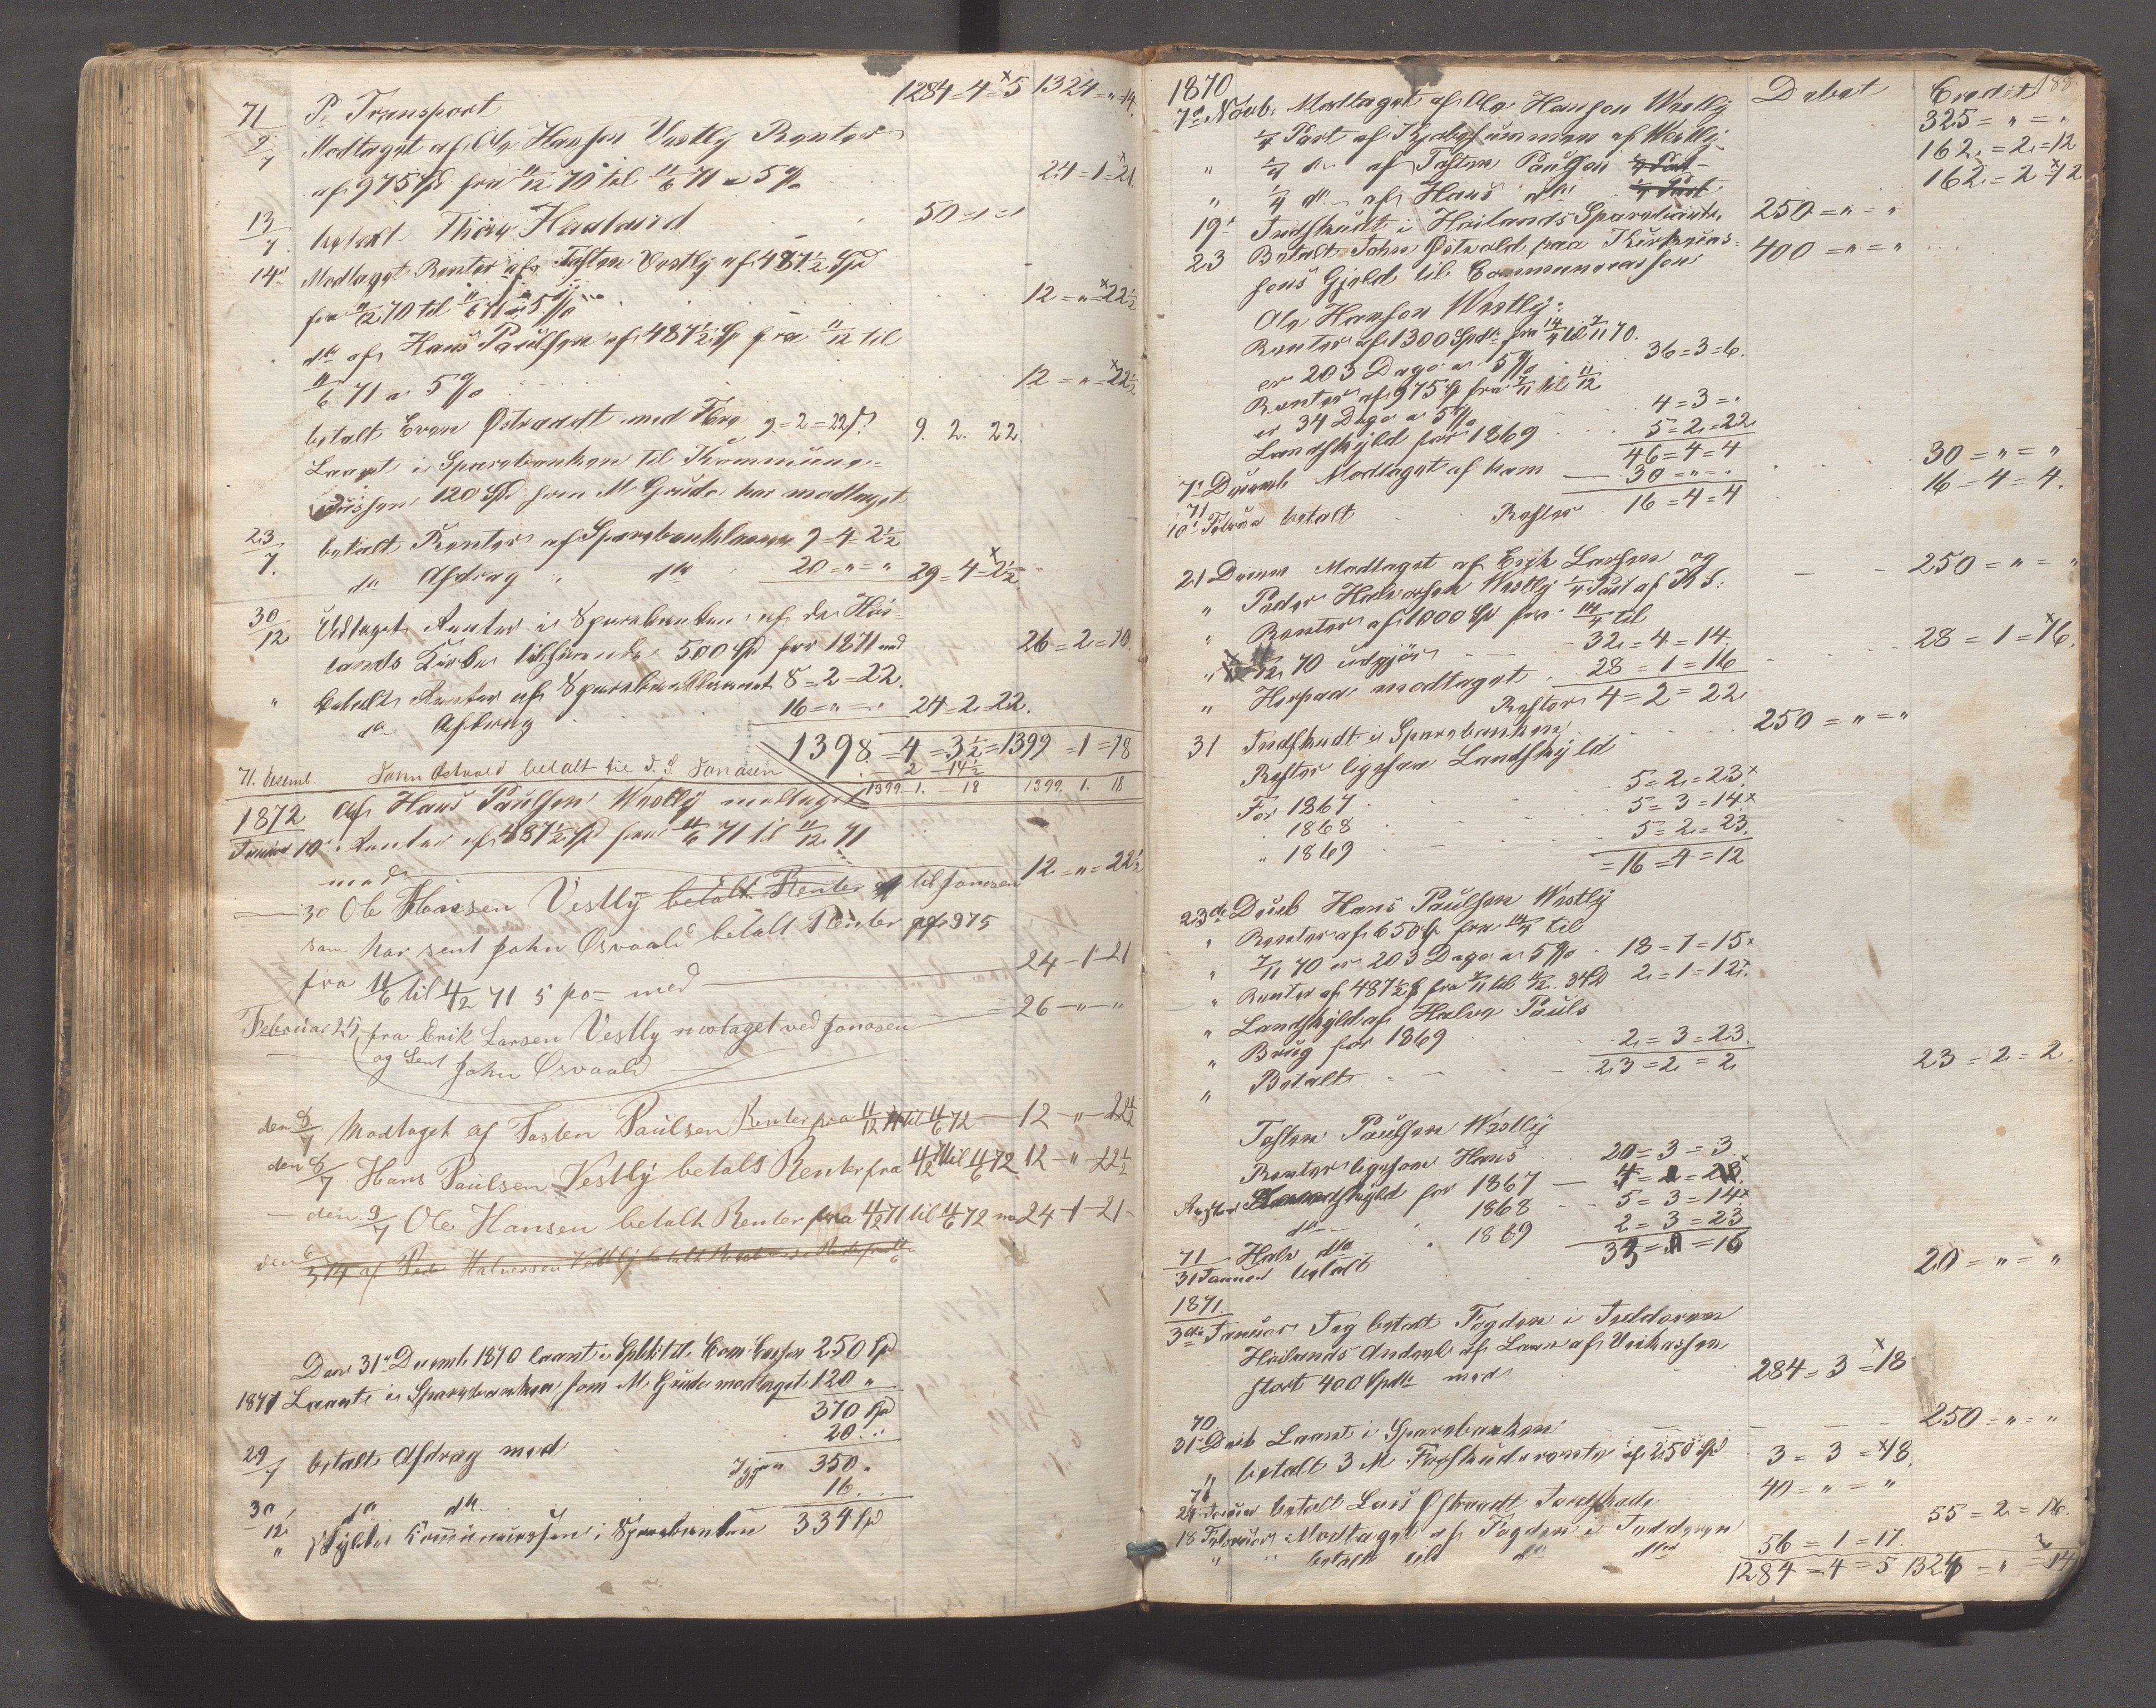 71 Pr Transport 1284=4=5 1324="=14.
2/7 Modtaget af Ole Hansen Vestly Renter
af 975 Spd fra 11/12 70 til 11/6 71 a 5% 24=1=21.
13/7 betalt Haaland 50="="
14de Modtaget Renter af Tosten Vestly af 487½ Spd
fra 11/12 70 til 11/6 71 a 5% 12="=22½
do af Hans Paulsen af 487½ Sp fra 11/12 til
11/6 71 a 5% 12="=22½
betalt Even Østraadt med 9=2=22 9. 2. 22.
Laant i Sparebanken til Kommune-
cassen 120 Spd som M Grude har modtaget
23/7. betalt Renter af Sparebanklaanen 9=4=2½
do Afdrag " do 20="=" 29=4=2½
30/12 Udtaget Renter i Sparebanken af de Høi-
lands Kirke tilhørende 500 Spd for 1871 med 26=2=10.
" betalt Renter af Sparebanklaanet 8=2=22.
do Afdrag 16="=" 24=2=22.
1398=4=3½=1399=1=18
71. Desemb. John Østvold betalt til Jonasen 2-14½
1399. 1. - 18 1399. 1. 18
1872 af Hans Paulsen Westly modtaget
Januar 10de Renter af 487½ Spd fra 11/6 71 til 11/12 71
med 12="=22½
30 Ole Hansen Vestly betalt Renter til Jonasen
som har sent John Osvaald betalt Renter af 975
fra 11/6 til 11/12 71 5 po- med 24-1-21
Februar 25 fra Erik Larsen Vestly motaget ved Jonasen 26-"-"
og Sent John Osvaald
den 8/7 Modtaget af Tosten Paulsen Renter fra 11/12 71 til 11/6 72 12-"-22½
den 8/7 Hans Paulsen Vestly betalt Renter fra 11/12 71 til 11/6 72 12-"-22½
den 9/7 Ole Hansen betalt Renter fra 11/12 71 til 11/6 72 m 24-1-21-
Den 31te Decemb 1870 laant i Spbk til Com Cassen 250 Spd
1871 Laant i Sparebanken som M. Grude modtaget 120 "
370 Spd
20 "
29/7 betalt Afdrag med Igjen 350 "
30/12 do do 16.
" skylder Kommunecassen i Sparebanken 334 Spd
1870 Debet Credit 188.
7de Novb. Modtaget af Ole Hansen Westly
¼ Part af Kjøbesummen af Westly 325="="
" ¼ do af Tosten Paulsen ¼ Part 162=2=12
" ¼ do af Hans do ¼ Part 162=2=12
19de Indskudt i Høilands Sparebank 250="="
23 Betalt John Østvold paa
sens Gjæld til Communecassen 400="="
Ole Hansen Westly:
Renter af 1300 Spd fra 14/4 til 7/11 70.
er 203 Dage a 5% 36=3=6.
Renter af 975 Sp fra 7/11 til 11/12
er 34 Dage a 5% 4=3="
Landskyld for 1869 5=2=22
46=4=4
7de Decemb Modtaget af ham 30="=" 30="="
71 Rester 16=4=4
10de Februar betalt 16=4=4.
21 Decem Modtaget af Erik Larsen og
" Peder Halvorsen Westly ¼ Part af K S: 250="="
" Renter af 1000 Sp fra 14/4 til
" 11/12 70 udgjør 32=4=14
" Herpaa modtaget 28=1=16 28=1=16.
Rester 4=2=22
31 Indskudt i Sparebanken 250="="
Rester ligesaa Landskyld
For 1867 5=2=23
" 1868 5=3=14
" 1869 5=2=23.
=16=4=12
23de Decb Hans Paulsen Westly
" Renter af 650 Sp fra 14/4 til
" 7/11 70 er 203 Dage a 5% 18=1=15
" Renter af 487½ Sp fra 7/11 til 11/12. 34 D 2=1=12.
" Landskyld af Halvor Pauls
" Brug for 1869 2=3=23.
" Betalt 23=2=2 23=2=2.
Tosten Paulsen Westly
Renter ligesom Hans 20=3=3.
Rester Landskyld for 1867
do " 1868 5=3=14
71 Halv do " 1869 2=3=23
31 Januar betalt 20="="
1871.
3die Januar Jeg betalt Fogden i Jedderen
Høilands Andeel af Laan af
stort 400 Spd med 284=3=18
70
31te Decb Laant i Sparebanken 250="="
" betalt 3 M Forskudsrente af 250 Spd 3=3=18.
71
24 Januar betalt Lars Østraadt 40="="
18 Februar Modtaget af Fogden i Jedderen 55=2=16.
" " betalt til do 56=1=17.
1284=4=5 1324="=14